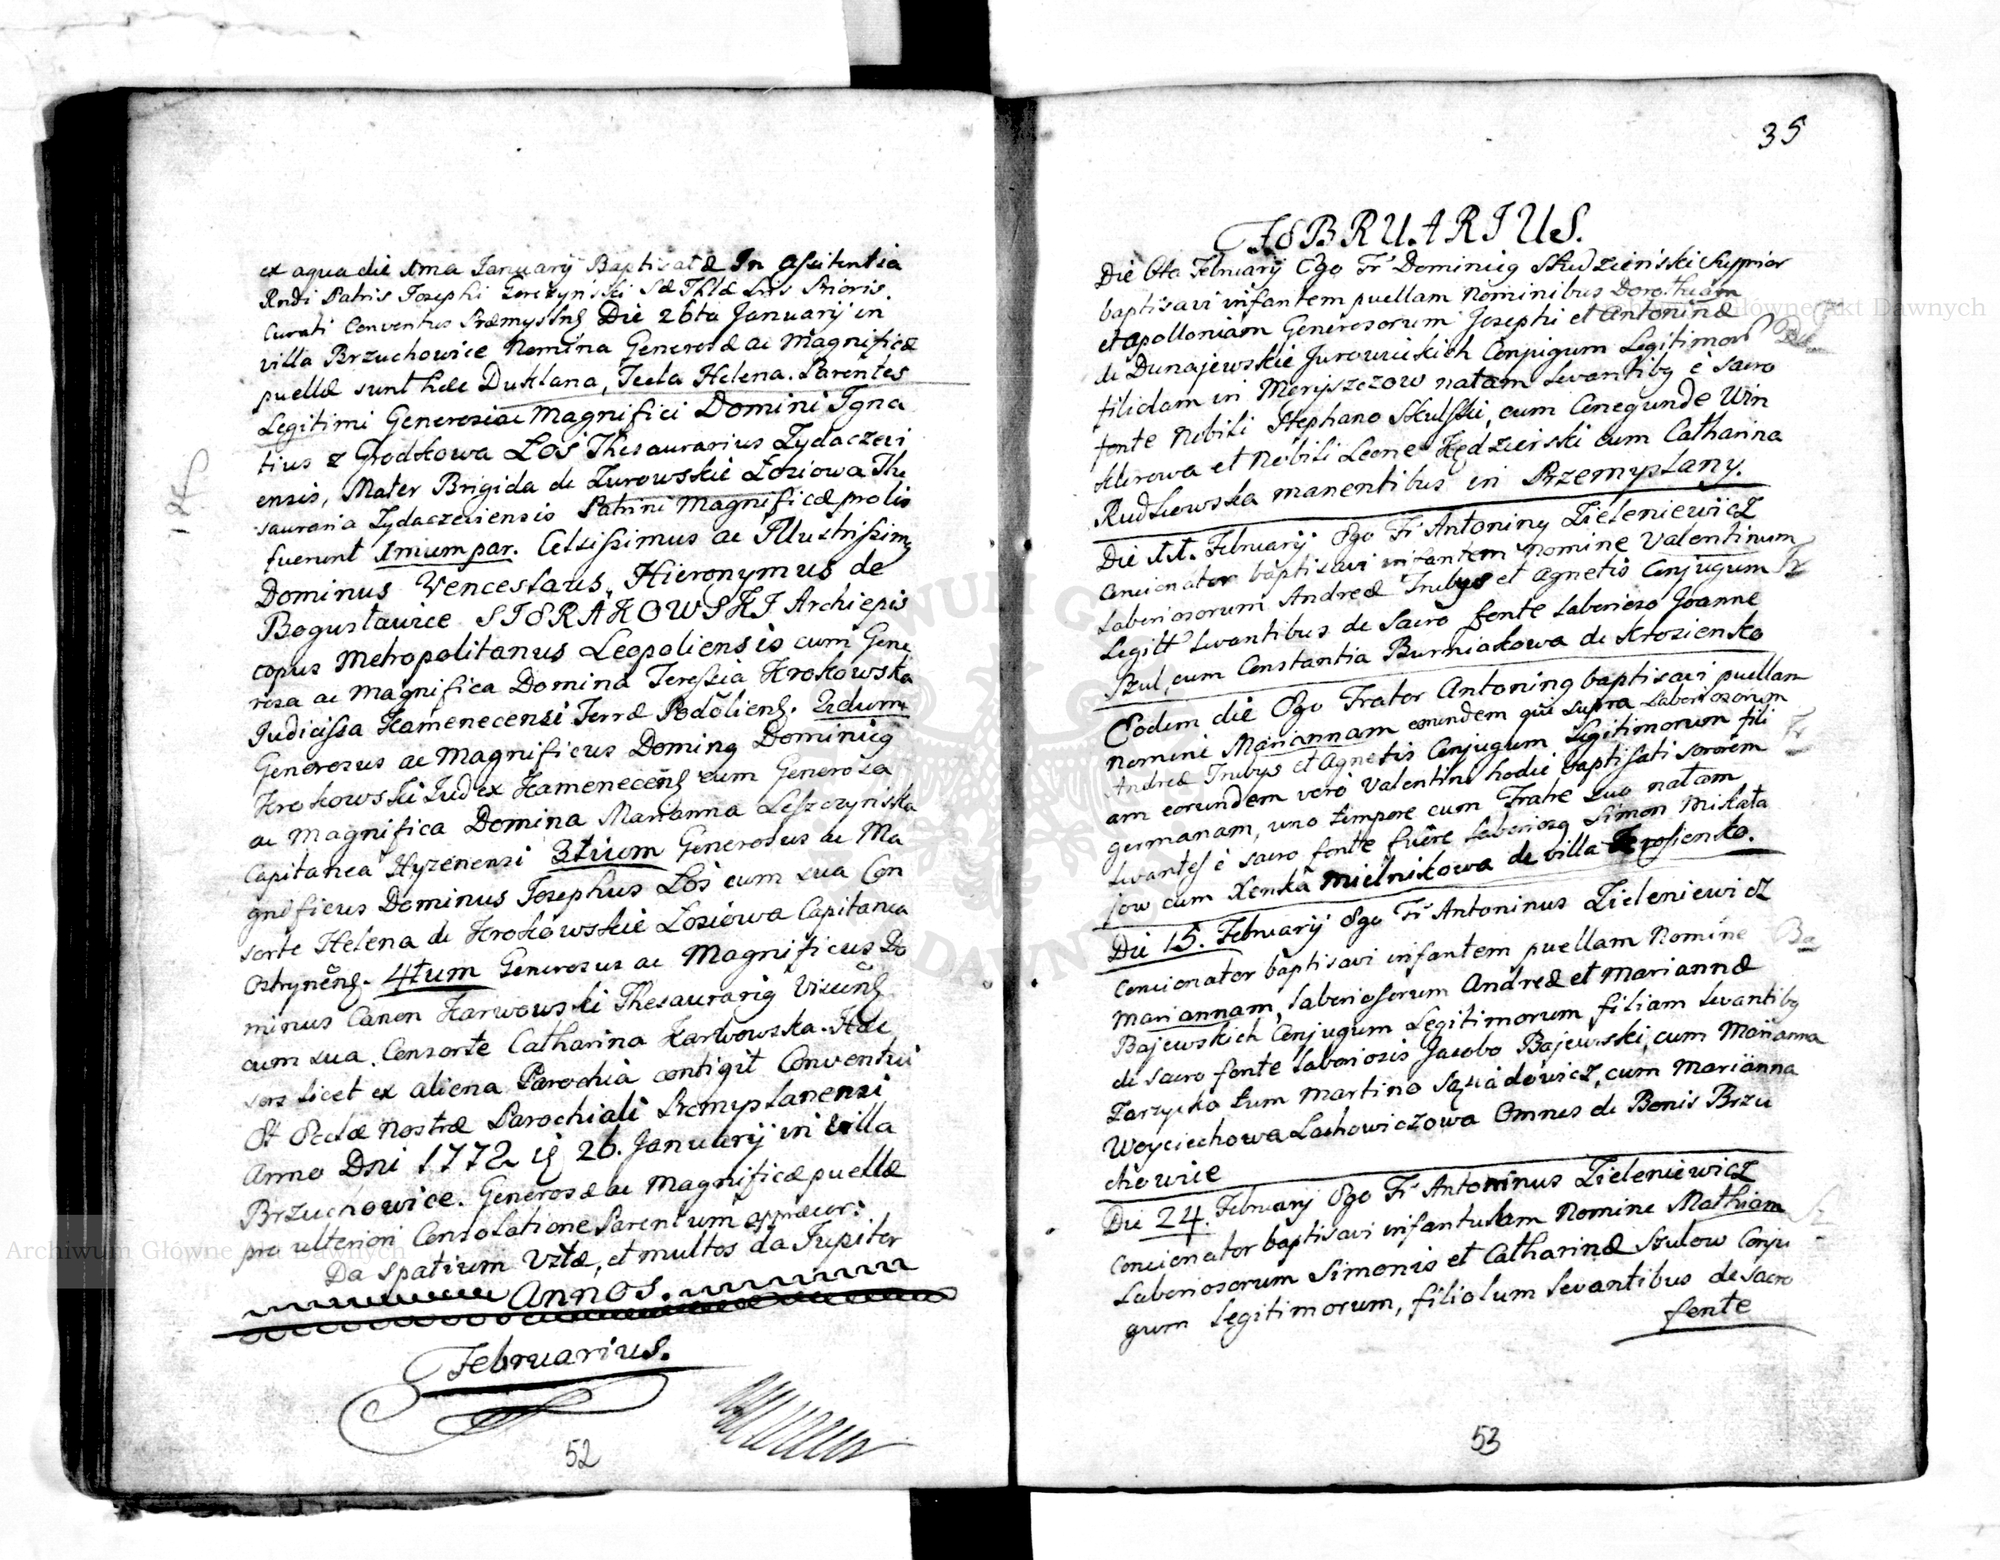 ex aqua die 1ma Januarij Baptisatæ In assistentia
Rndi Patris Josephi Sæ Thlæ Prioris,
Curati Conventus Præmyslnsi Die 26ta Januarij in
villa Brzuchowice Nomina Generosæ ac Magnificæ
puellæ sunt hæc Duklana, Tecla Helena. Parentes
Legitimi Generosi ac Magnifici Domini Igna
tius z Grodkowa Łoś Thesaurarius Zydaczovi
ensis, Mater Brigida de Zurowskie Łosiowa The
sauraria Zydaczeviensis Patrini Magnificæ prolis
fuerunt 1mum par. Celsissimus ac Illustrissimg
Dominus Venceslaus, Hieronymus de
Bogusławice SIERAKOWSKI Archiepis
copus Metropolitanus Leopoliensis cum Gene
rosa ac Magnifica Domina Teressia Krokowska
Judicissa Kamenecensi Terræ Podoliens. 2dum
Generosus ac Magnificus Doming Dominicg
Krokowski Judex Kamenecens cum Generosa
ac Magnifica Domina Marianna Leszczynska
Capitanea Hyzenensi 3tium Generosus ac Ma
gnificus Dominus Josephus Łoś cum sua Con
sorte Helena de Krokowskie Łosiowa Capitanea
Ostrynens. 4tum Generosus ac Magnificus Do
minus Canon Karwowski Thesaurarig Visnens
cum sua Consorte Catharina Karwowska. Hæc
sors licet ex aliena Parochia contigit Conventui
Et Ecclæ Nostræ Parochiali Premyslanensi
Anno Dni 1772 26. Januarij in villa
Brzuchowice. Generosæ ac Magnificæ puellæ
pro ulteriori Consolatione Parentum apprecor:
Da spatium Vitæ, et multos da Jupiter
Annos.
Februarius.
52
35
FEBRUARIUS.
Die 6ta Februarij Ego Fr Dominicg Studzieński Supprior
baptisavi infantem puellam Nominibus Dorotheam
et Apolloniam Generosorum Josephi et Antoninæ
de Dunajewskie Jurowickich Conjugum Legitimor
filiolam in Meryszczow natam Levantibg è sacro
fonte Nobili Stephano Skulski, cum Cenegunde Win
klerowa et Nobili Leone Kędzierski cum Catharina
Rudkowska manentibus in Przemyslany.
Die 11. Februarij Ego Fr Antoning Zieleniewicz
Concionator baptisavi infantem Nomine Valentinum
Laboriosorum Andreæ Trubys et Agnetis Conjugum
Legitt Levantibus de Sacro fonte Laborioso Joanne
Szul, cum Constantia Burniakowa de Krosienko
Eodem die Ego Frater Antoning baptisavi puellam
Nomine Mariannam eorundem qui supra Laboriosorum
Andreæ Trubys et Agnetis Conjugum Legitimorum fili
am eorundem verò Valentini hodie baptisati sororem
germanam, uno tempore cum Fratre suo natam
Levantes è sacro fonte fuere Laboriosg Simon Mikata
jow cum Xenka Mielnikowa de villa Krosienko.
Die 15. Februarij Ego Fr Antoninus Zieleniewicz
Concionator baptisavi infantem puellam Nomine
Mariannam, Laboriosorum Andreæ et Mariannæ
Bajewskich Conjugum Legitimorum filiam Levantibg
de sacro fonte Laboriosis Jacobo Bajewski, cum Marianna
Zarzycka tum Martino Sąsiadowicz, cum Marianna
Woyciechowa Lachowiczowa Omnes de Bonis Brzu
chowice
Die 24. Februarij Ego Fr Antoninus Zieleniewicz
Concionator baptisavi infantulam Nomine Mathiam
Laboriosorum Simonis et Catharinæ Szulow Conju
gum Legitimorum, filiolum Levantibus de sacro
fonte
53
Archiwum Główne Akt Dawnych